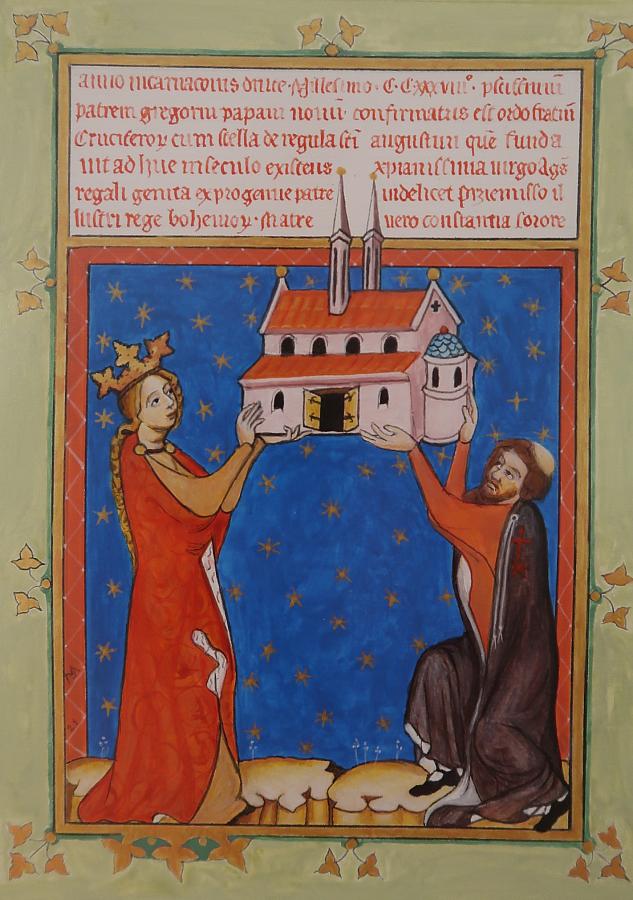 anno incarnacoius dnice · Millesimo · C · Cxxxviii° · pscissimū
patrem gregoriū papam nonū · confirmatus est ordo fratrū
Cruciferoꝝ cum stella de regula sti augustini quē funda
uit adhuc in seculo existens xpianissima uirgo Ags
regali genita ex progenie patre uidelicet prziemisso il
lustri rege bohemoꝝ · Matre uero constantia sorore